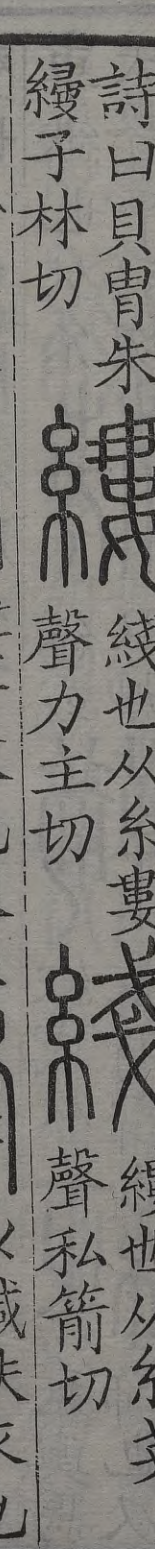 詩曰貝胄朱
綅子林切
縷
綫也从糸婁
聲力主切
綫
縷也从糸戔
聲私箭切